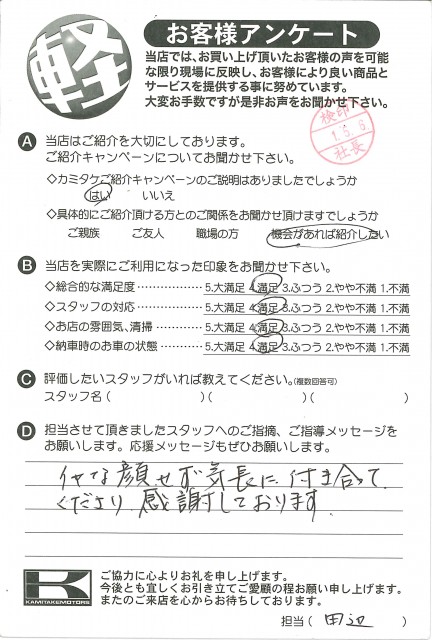 軽
お客様アンケート
当店では、お買い上げ頂いたお客様の声を可能
な限り現場に反映し、お客様により良い商品と
サービスを提供する事に努めています。
大変お手数ですが是非お声をお聞かせ下さい。
検印
1.5.6
社長
A 当店はご紹介を大切にしております。
ご紹介キャンペーンについてお聞かせ下さい。
◇カミタケご紹介キャンペーンのご説明はありましたでしょうか
はい いいえ
◇具体的にご紹介頂ける方とのご関係をお聞かせ頂けますでしょうか
ご親族 ご友人 職場の方 機会があれば紹介したい
B 当店を実際にご利用になった印象をお聞かせ下さい。
◇総合的な満足度 5.大満足 4.満足 3.ふつう 2.やや不満 1.不満
◇スタッフの対応 5.大満足 4.満足 3.ふつう 2.やや不満 1.不満
◇お店の雰囲気、清掃 5.大満足 4.満足 3.ふつう 2.やや不満 1.不満
◇納車時のお車の状態 5.大満足 4.満足 3.ふつう 2.やや不満 1.不満
C 評価したいスタッフがいれば教えてください。(複数回答可)
スタッフ名( )( )( )
D 担当させて頂きましたスタッフへのご指摘、ご指導メッセージを
お願いします。応援メッセージもぜひお願いします。
イヤな顔せず気長に付き合って
くださり感謝しております。
K
KAMITAKEMOTORS
ご協力に心よりお礼を申し上げます。
今後とも宜しくお引き立てご愛顧の程お願い申し上げます。
またのご来店を心からお待ちしております。
担当( 田辺 )